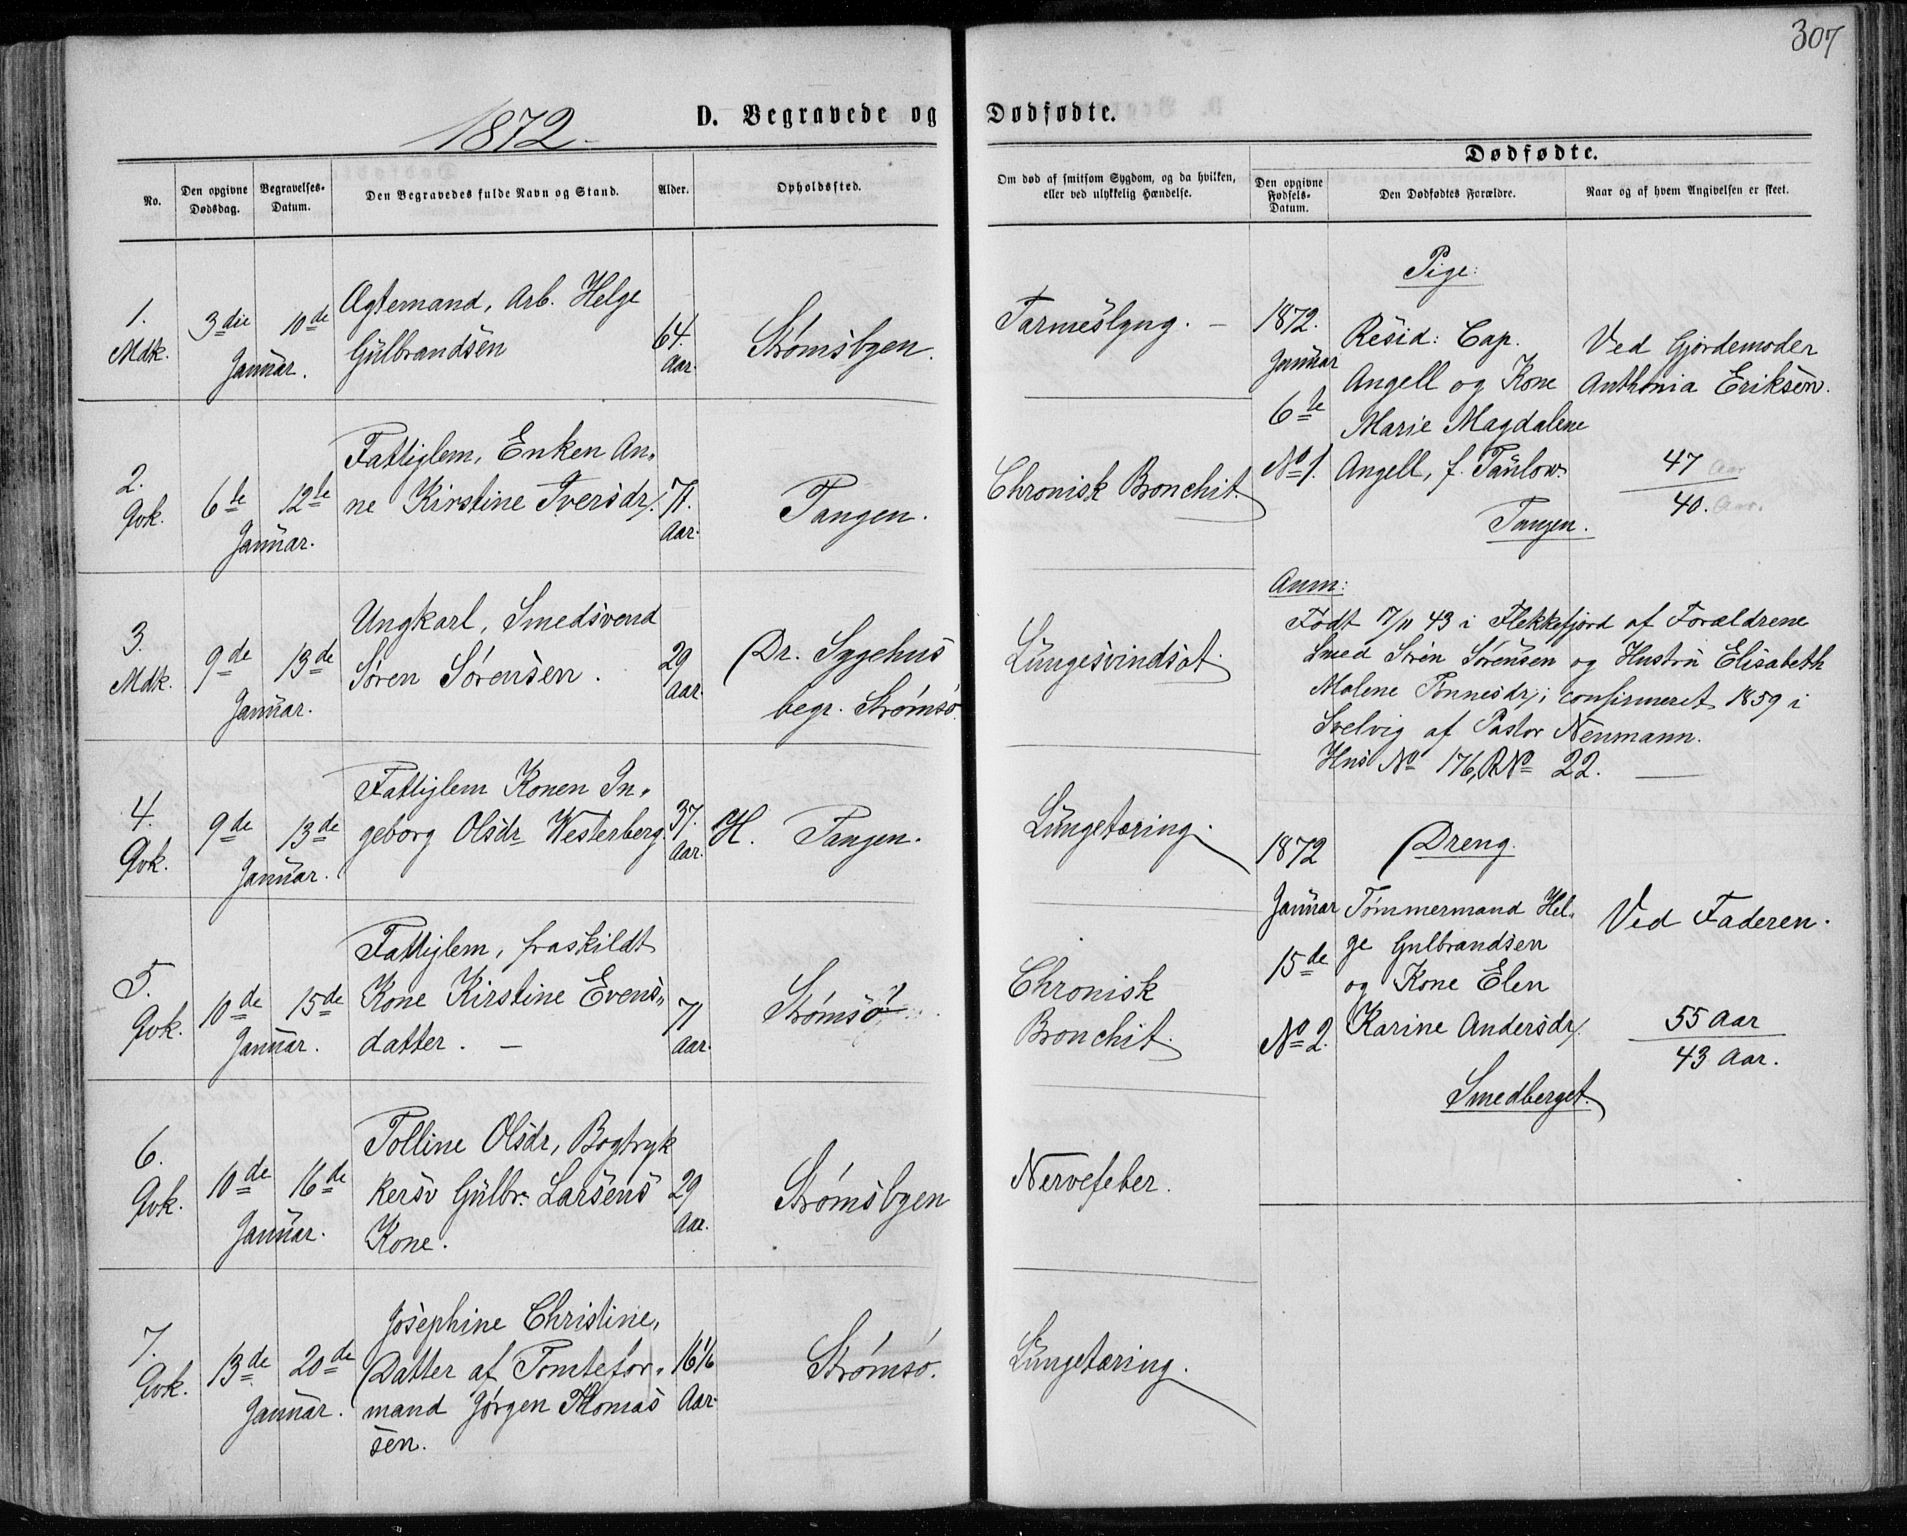 307
1872.
D. Begravede og Dødfødte.
No.
Den opgivne Dødsdag.
Begravelses-Datum.
Den Begravedes fulde Navn og Stand.
Alder.
Opholdssted.
Om død af smitsom Sygdom, og da hvilken,
eller ved ulykkelig Hændelse.
Dødfødte.
Den opgivne Fødsels-Datum.
Den Dødfødtes Forældre.
Naar og af hvem Angivelsen er skeet.
1.
Mdk.
3die 10de
Januar.
Ægtemand, Arb. Helge
Gulbrandsen
64.
Aar.
Strømsbyen.
Tarmeslyng. –
2.
Qvk.
6te 12te
Januar.
Fattiglem, Enken An-
ne Kirstine Iversdr.
71.
Aar.
Tangen.
Chronisk Bronchit.
3.
Mdk.
9de 13de
Januar.
Ungkarl, Smedsvend
Søren Sørensen.
29
Aar.
Dr. Sygehus
begr. Strømsø.
Lungesvindsot.
4.
Qvk.
9de 13de
Januar.
Fattiglem Konen In-
geborg Olsdr Westerberg.
37.
Aar.
H. Tangen.
Lungetæring.
5.
Qvk.
10de 15de
Januar.
Fattiglem, fraskildt
Kone Kirstine Evens-
datter. –
71
Aar.
Strømsø
Chronisk
Bronchit.
6.
Qvk.
10de 16de
Januar.
Tolline Olsdr, Bogtryk
kersv Gulbr. Larsens
Kone.
29
Aar.
Strømsbyen
Nervefeber.
7.
Qvk.
13de 20de
Januar.
Josephine Christine,
Datter af Tomtefor-
mand Jørgen Thomas
sen.
16 1/6
Aar.
Strømsø.
Lungetæring.
Pige:
1872.
Januar
6te
No 1.
Resid: Cap.
Angell og Kone
Marie Magdalene
Angell, f. Taulow.
Tangen.
Ved Gjordemoder
Anthonia Eriksen.
47 Aar
40. Aar.
Anm:
Født 7/11 43 i Flekkefjord af Forældrene
Smed Sören Sørensen og Hustru Elisabeth
Malene Tønnesdr; confirmeret 1859 i
Svelvig af Pastor Neumann.
Hus No 176, R No 22. –
1872
Januar
15de
No 2.
Dreng.
Tømmermand Hel-
ge Gulbrandsen
og Kone Elen
Karine Andersdr.
Smedberget.
Ved Faderen.
55 Aar
43 Aar.